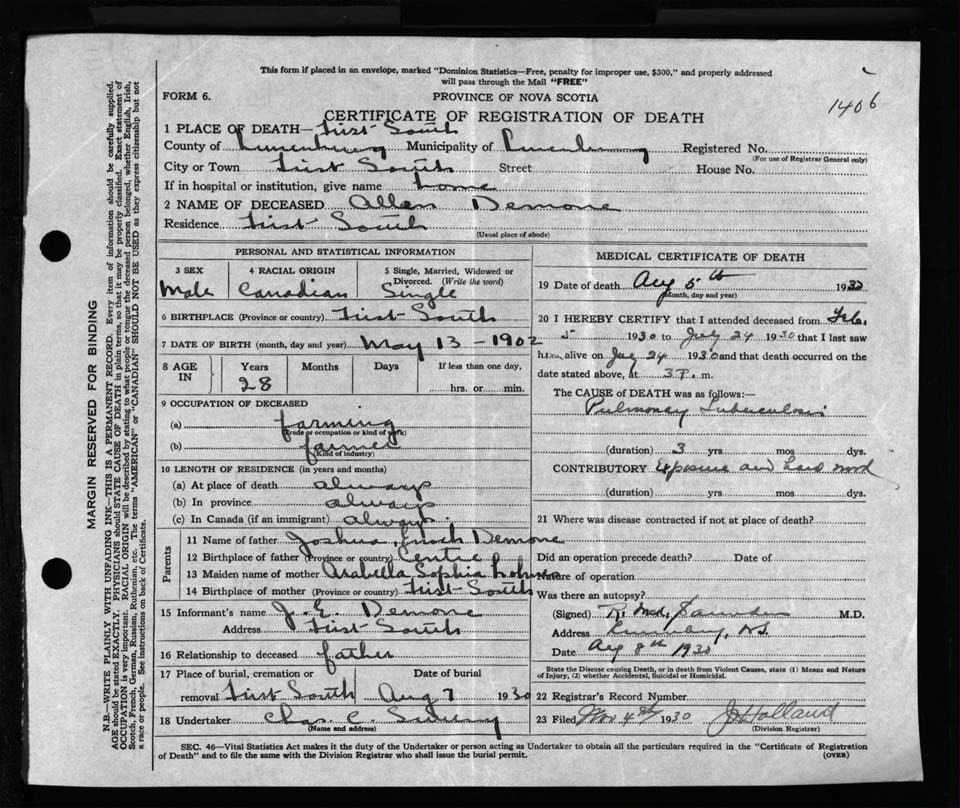 This form if placed in an envelope, marked "Dominion Statistics—Free, penalty for improper use, $300," and properly addressed
will pass through the Mail "FREE"
FORM 6. PROVINCE OF NOVA SCOTIA
1406
CERTIFICATE OF REGISTRATION OF DEATH
1 PLACE OF DEATH— First South
County of Lunenburg Municipality of Lunenburg Registered No.
(For use of Registrar General only)
City or Town First South Street House No.
If in hospital or institution, give name home
2 NAME OF DECEASED Allen Demone
Residence First South
(Usual place of abode)
PERSONAL AND STATISTICAL INFORMATION
3 SEX 4 RACIAL ORIGIN 5 Single, Married, Widowed or
Divorced. (Write the word)
Male Canadian Single
6 BIRTHPLACE (Province or country) First South
7 DATE OF BIRTH (month, day and year) May 13 - 1902
8 AGE IN Years Months Days If less than one day,
28 hrs. or min.
9 OCCUPATION OF DECEASED
(a) farming
(Trade or occupation or kind of work)
(b) farmer
(Kind of industry)
10 LENGTH OF RESIDENCE (in years and months)
(a) At place of death always
(b) In province always
(c) In Canada (if an immigrant) always
Parents
11 Name of father Joshua Enoch Demone
12 Birthplace of father (Province or country) Centre
13 Maiden name of mother Arabella Sophia
14 Birthplace of mother (Province or country) First South
15 Informant's name J. E. Demone
Address First South
16 Relationship to deceased father
17 Place of burial, cremation or Date of burial
removal First South Aug 7 1930
18 Undertaker Chas. C.
(Name and address)
MEDICAL CERTIFICATE OF DEATH
19 Date of death Aug 5th 1930
(Month, day and year)
20 I HEREBY CERTIFY that I attended deceased from Feb.
5 1930 to July 24 1930 that I last saw
him alive on July 24 1930 and that death occurred on the
date stated above, at 3 P. m.
The CAUSE OF DEATH was as follows:—
Pulmonary Tuberculosis
(duration) 3 yrs mos dys.
CONTRIBUTORY Exposure and hard work
(duration) yrs mos dys.
21 Where was disease contracted if not at place of death?
Did an operation precede death? Date of
Nature of operation
Was there an autopsy?
(Signed) M.D.
Address Lunenburg, N.S.
Date Aug 8th 1930
State the Disease causing Death, or in death from Violent Causes, state (1) Means and Nature
of Injury, (2) whether Accidental, Suicidal or Homicidal.
22 Registrar's Record Number
23 Filed Nov 4th 1930 J Holland
(Division Registrar)
SEC. 46—Vital Statistics Act makes it the duty of the Undertaker or person acting as Undertaker to obtain all the particulars required in the "Certificate of Registration
of Death" and to file the same with the Division Registrar who shall issue the burial permit. (OVER)
MARGIN RESERVED FOR BINDING
N.B.—WRITE PLAINLY WITH UNFADING INK—THIS IS A PERMANENT RECORD. Every item of information should be carefully supplied.
AGE should be stated EXACTLY. PHYSICIANS should STATE CAUSE OF DEATH in plain terms, so that it may be properly classified. Exact statement of
OCCUPATION is very important. RACIAL ORIGIN will be described by stating to what people or tongue the deceased person belonged, whether English, Irish,
Scotch, French, German, Russian, Ruthenian, etc. The terms "AMERICAN" or "CANADIAN" SHOULD NOT BE USED as they express citizenship but not
a race or people. See instructions on back of Certificate.